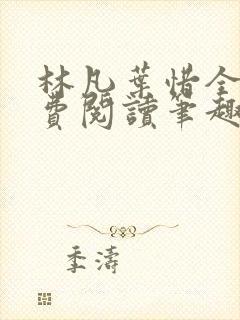 林凡葉惜全
費閱讀筆趣
季濤